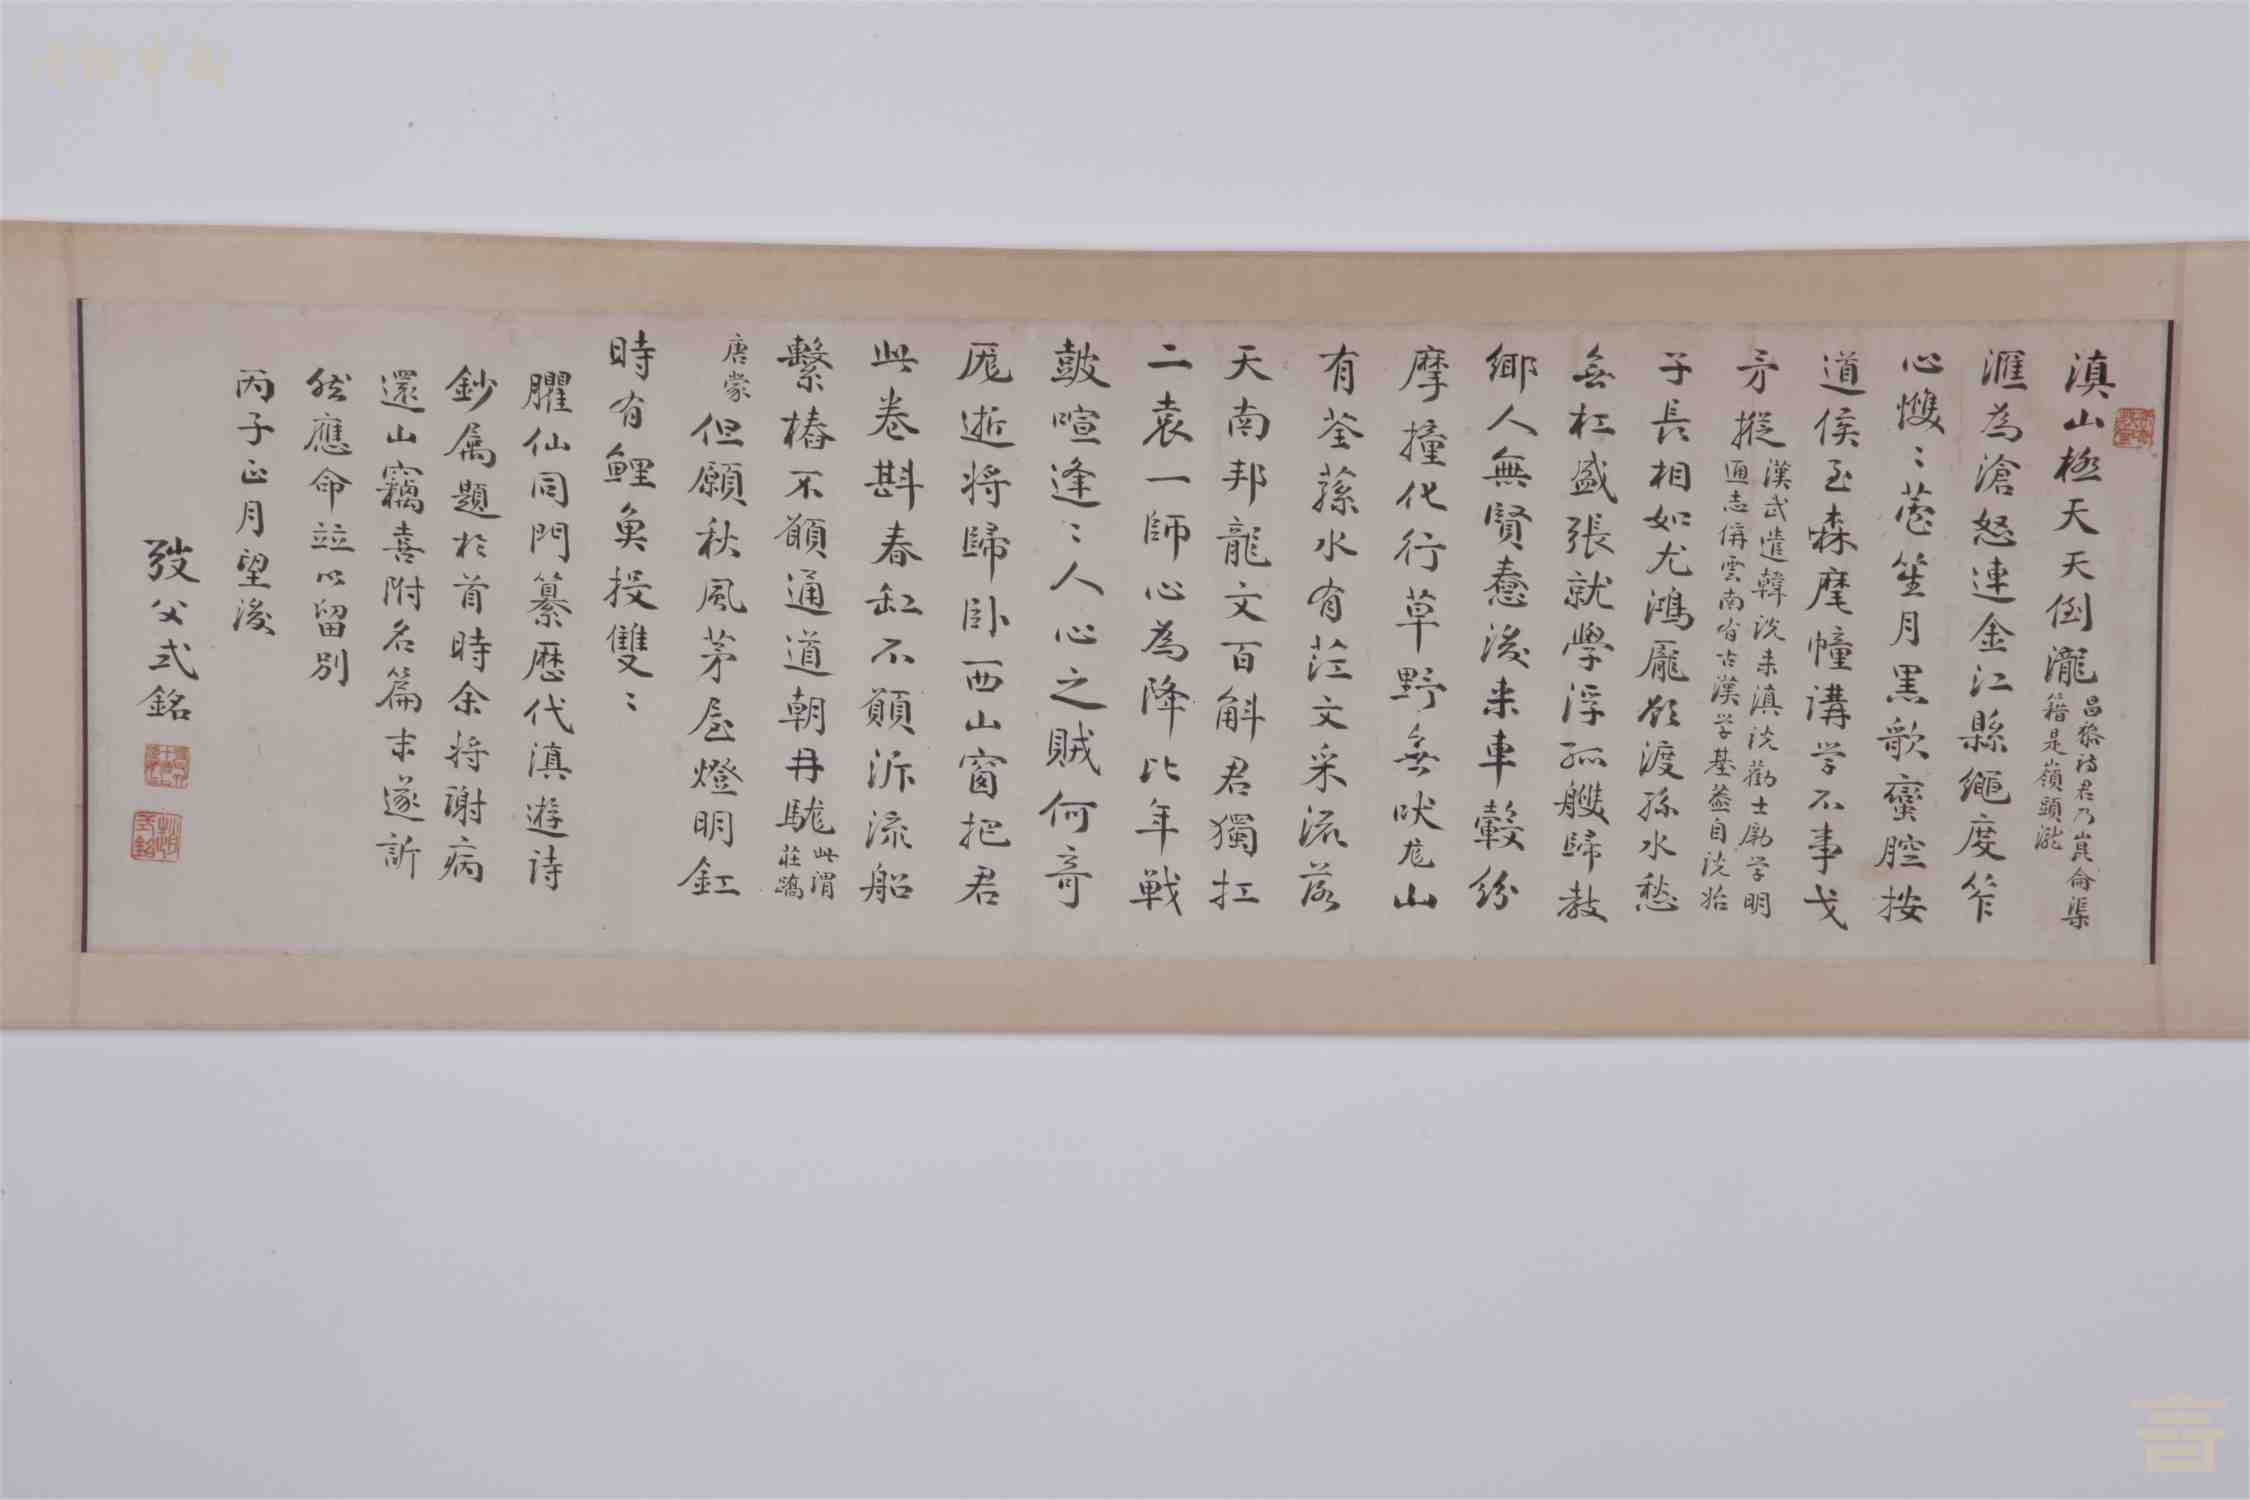 滇山極天天倒瀧昌黎詩君乃崑崙渠
籍是嶺頭瀧
滙為滄怒連金江縣繩度笮
心慺〻蘆笙月黑歌蠻腔按
道侯至森麾幢講学不事戈
矛摐漢武遣韓說来滇說勸士勵学明
通志偁雲南省古漢学基葢自說始
子長相如尤鴻龎欲渡孫水愁
無杠盛張就學浮孤艭歸教
鄉人無賢憃後来車轂紛
摩撞化行草野無吠尨山
有荃蓀水有茳文采流落
天南邦龍文百斛君獨扛
二袁一師心為降比年戰
鼓喧逢〻人心之賊何奇
厖逝将歸卧西山窗把君
此卷斟春缸不願泝流船
繫樁不願通道朝冄駹此謂
莊蹻
唐蒙但願秋風茅屋燈明釭
時有鯉魚投雙〻
臞仙同門纂歷代滇遊詩
鈔属題於首時余将謝病
還山竊喜附名篇末遂訢
然應命竝以留別
丙子正月望後
弢父式銘